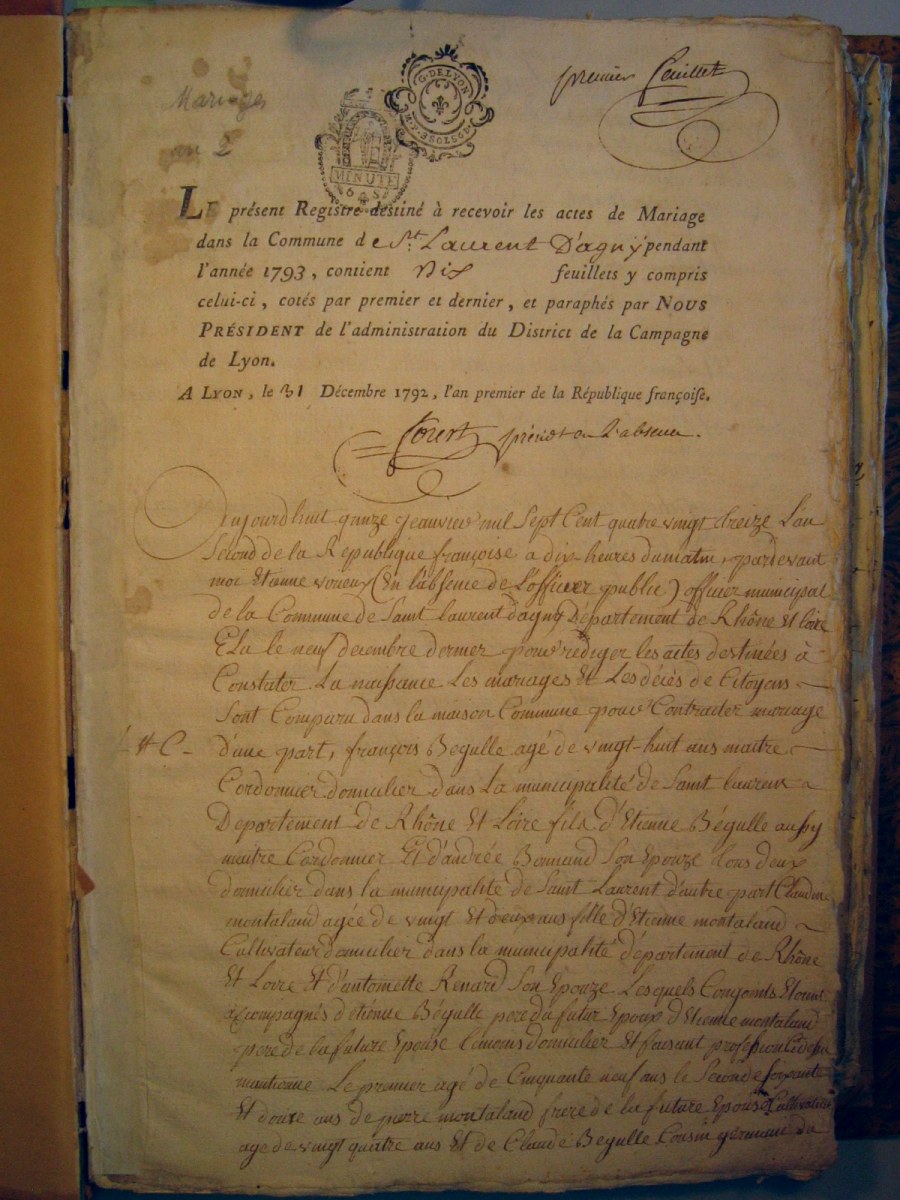 premier feuillet
Mariages
an 2
G. DE LYON
MINUTE
6 S
LE présent Registre destiné à recevoir les actes de Mariage
dans la Commune de St. Laurent D'agny pendant
l'année 1793, contient dix feuillets y compris
celui-ci, cotés par premier et dernier, et paraphés par NOUS
PRÉSIDENT de l'administration du District de la Campagne
de Lyon.
A LYON, le 31 Décembre 1792, l'an premier de la République françoise.
en l'absence.
Aujourd'huit quinze jeanvier mil Sept Cent quatre vingt treize L'an
Second de la République françoise a dix heures du matin, pardevant
moi Etienne (En l'absence de L'officier public) officier municipal
de la Commune de Saint Laurent d'agny Département de Rhône Et Loire
Elu le neuf decembre dernier pour rediger les actes destinées à
Constater La naissance Les mariages Et Les décès de Citoyens
Sont Comparu dans la maison Commune pour Contracter mariage
d'une part, françois Begulle agé de vingt-huit ans maitre
Cordonnier domicilier dans La municipalité de Saint laurent
Departement de Rhône Et Loire fils d'Etienne Bégulle aussy
maitre Cordonnier Et d'andrée Bonnand Son Epouze tous deux
domicilier dans la municipalité de Saint Laurent d'autre part Claudine
montaland agée de vingt Et deux ans fille d'Etienne montaland
Cultivateur domicilier dans la municipalité département de Rhône
Et Loire Et d'antoinette Renard Son Epouze. Lesquels Conjoints Etoint
accompagnés d'etienne Bégulle pere du futur Epoux d'Etienne montaland
pere de la future Epouse domicilier Et faisant profession
mantionné Le premier agé de Cinquante neuf ans le Second de soixante
Et douze ans de pierre montaland frere de la future Epouse Cultivateur
agé de vingt quatre ans Et de Claude Begulle Cousin germain du